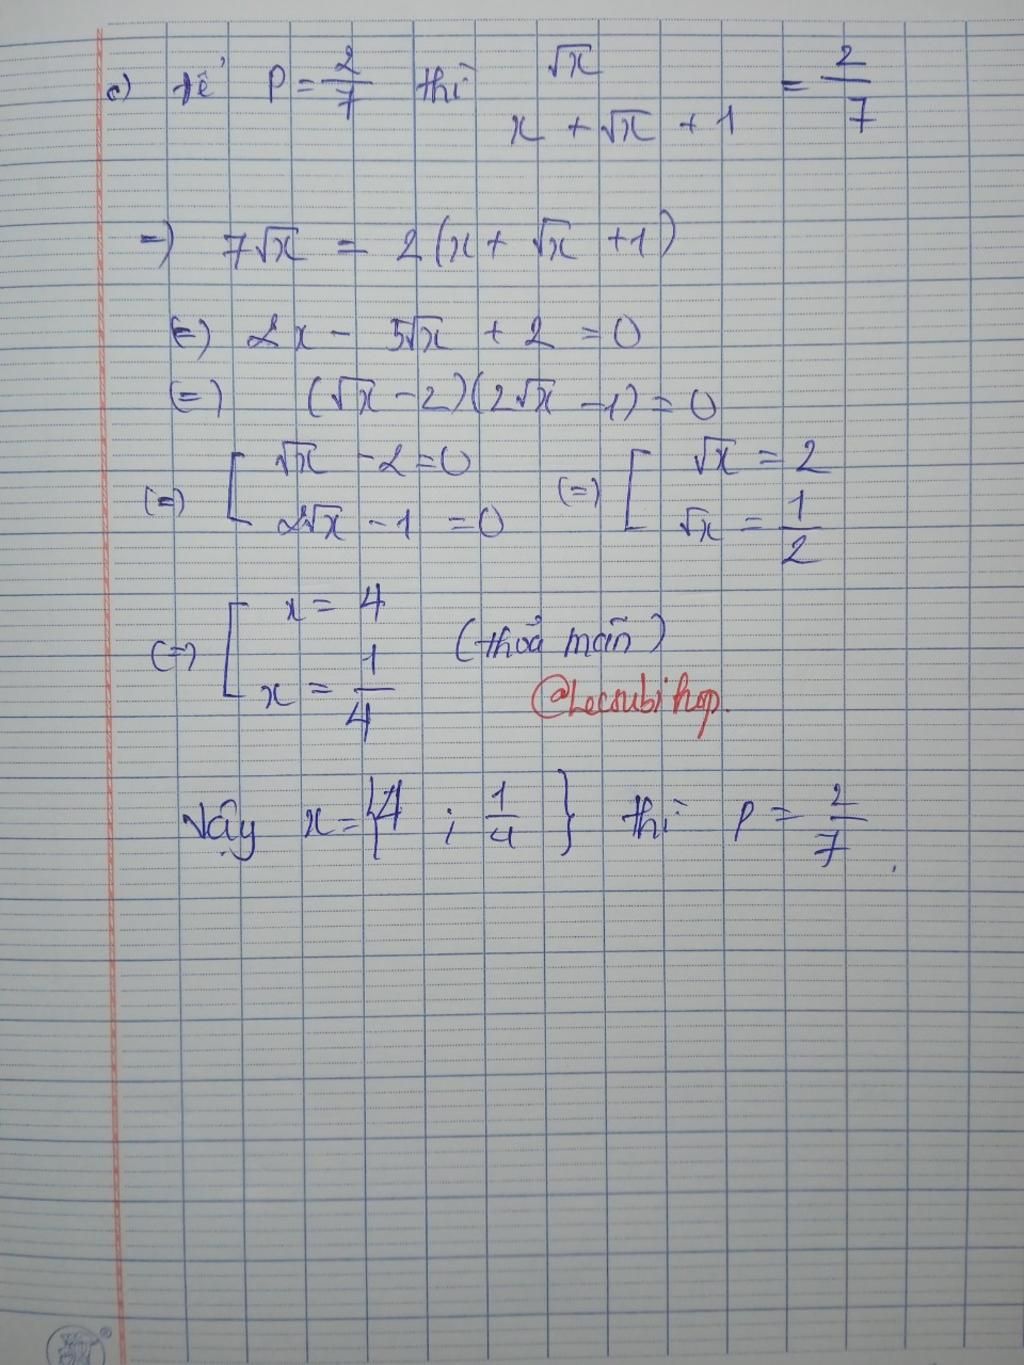 c) để P = 2/7 thì √x / x + √x + 1 = 2/7
=) 7√x = 2(x + √x + 1)
(=) 2x - 5√x + 2 = 0
(=) (√x - 2)(2√x - 1) = 0
(=) [ √x - 2 = 0 ; 2√x - 1 = 0 (=) [ √x = 2 ; √x = 1/2
(=) [ x = 4 ; x = 1/4 (thoả mãn)
Vậy x = {4 ; 1/4} thì P = 2/7.